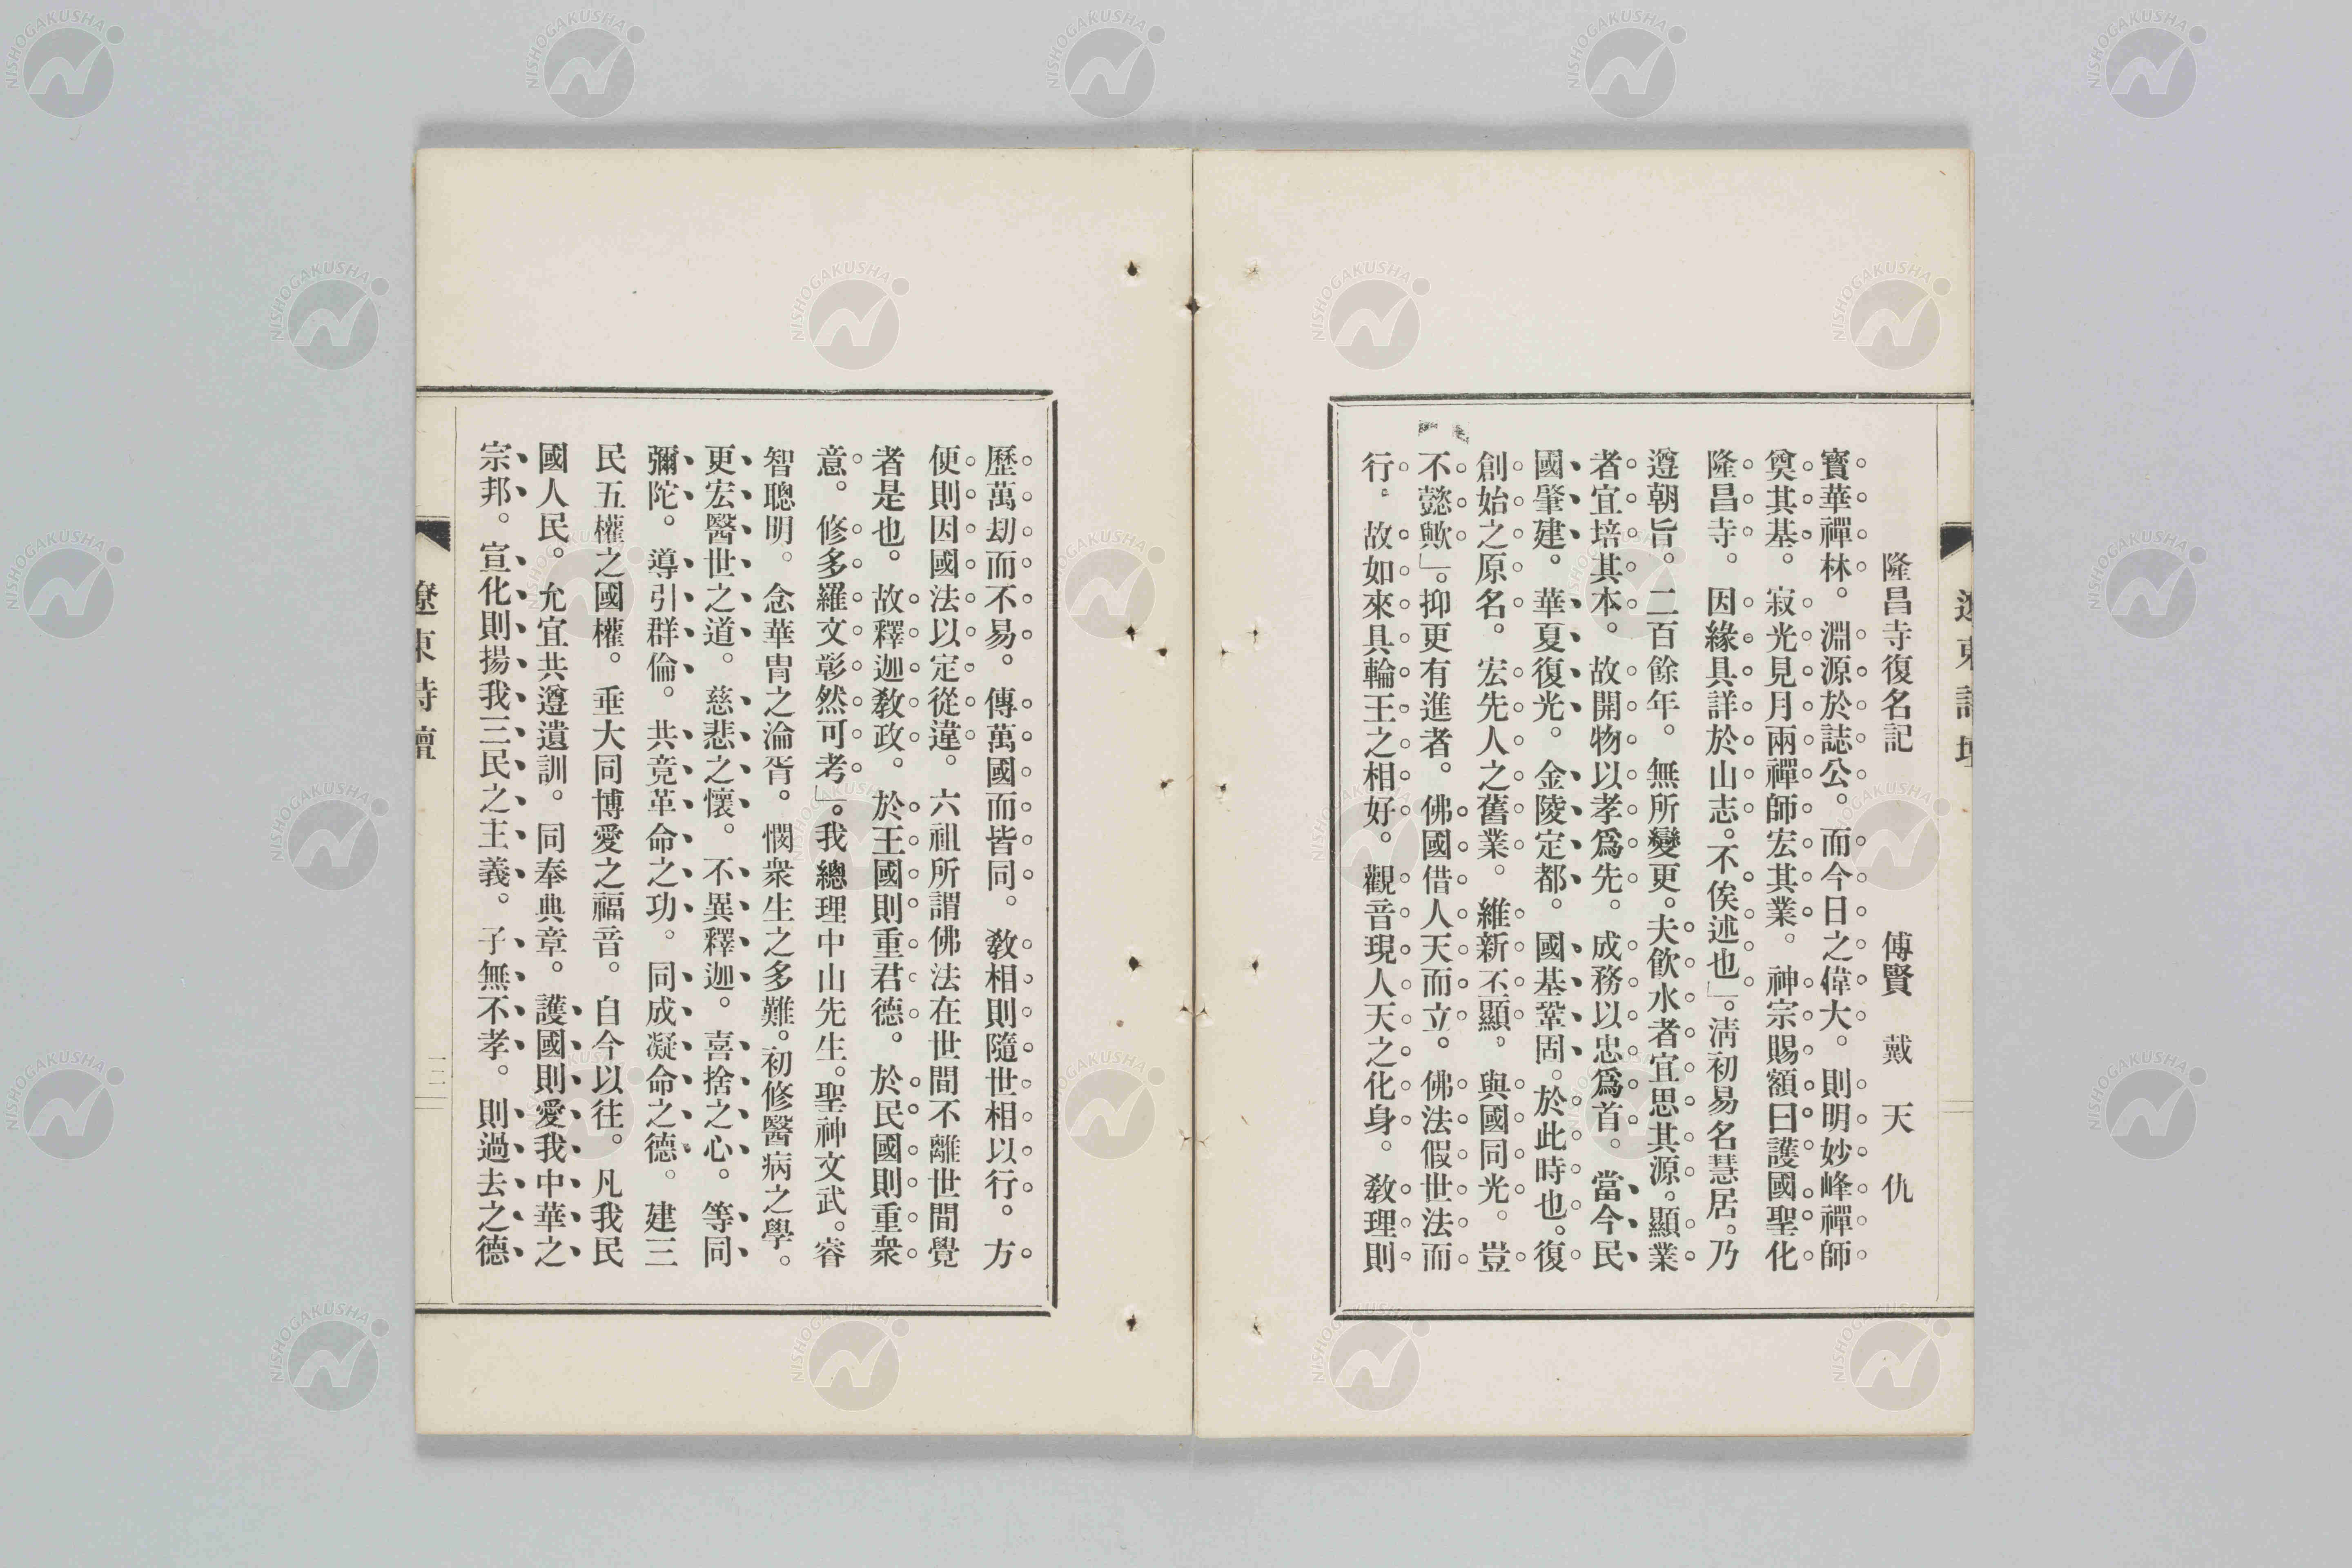 隆昌寺復名記　傅賢　戴天仇
寶華禪林。淵源於誌公。而今日之偉大。則明妙峰禪師
奠其基。寂光見月兩禪師宏其業。神宗賜額曰護國聖化
隆昌寺。因緣具詳於山志。不俟述也」。淸初易名慧居。乃
遵朝旨。二百餘年。無所變更。夫飮水者宜思其源。顯業
者宜培其本。故開物以孝爲先。成務以忠爲首。當今民
國肇建。華夏復光。金陵定都。國基鞏固。於此時也。復
創始之原名。宏先人之舊業。維新丕顯。與國同光。豈
不懿歟」。抑更有進者。佛國借人天而立。佛法假世法而
行。故如來具輪王之相好。觀音現人天之化身。敎理則
歷萬刧而不易。傳萬國而皆同。敎相則隨世相以行。方
便則因國法以定從違。六祖所謂佛法在世間不離世間覺
者是也。故釋迦敎政。於王國則重君德。於民國則重衆
意。修多羅文彰然可考」。我總理中山先生。聖神文武。睿
智聰明。念華冑之淪胥。憫衆生之多難。初修醫病之學。
更宏醫世之道。慈悲之懷。不異釋迦。喜捨之心。等同
彌陀。導引群倫。共竟革命之功。同成凝命之德。建三
民五權之國權。垂大同博愛之福音。自今以往。凡我民
國人民。允宜共遵遺訓。同奉典章。護國則愛我中華之
宗邦。宣化則揚我三民之主義。子無不孝。則過去之德
遼東詩壇
NISHOGAKUSHA